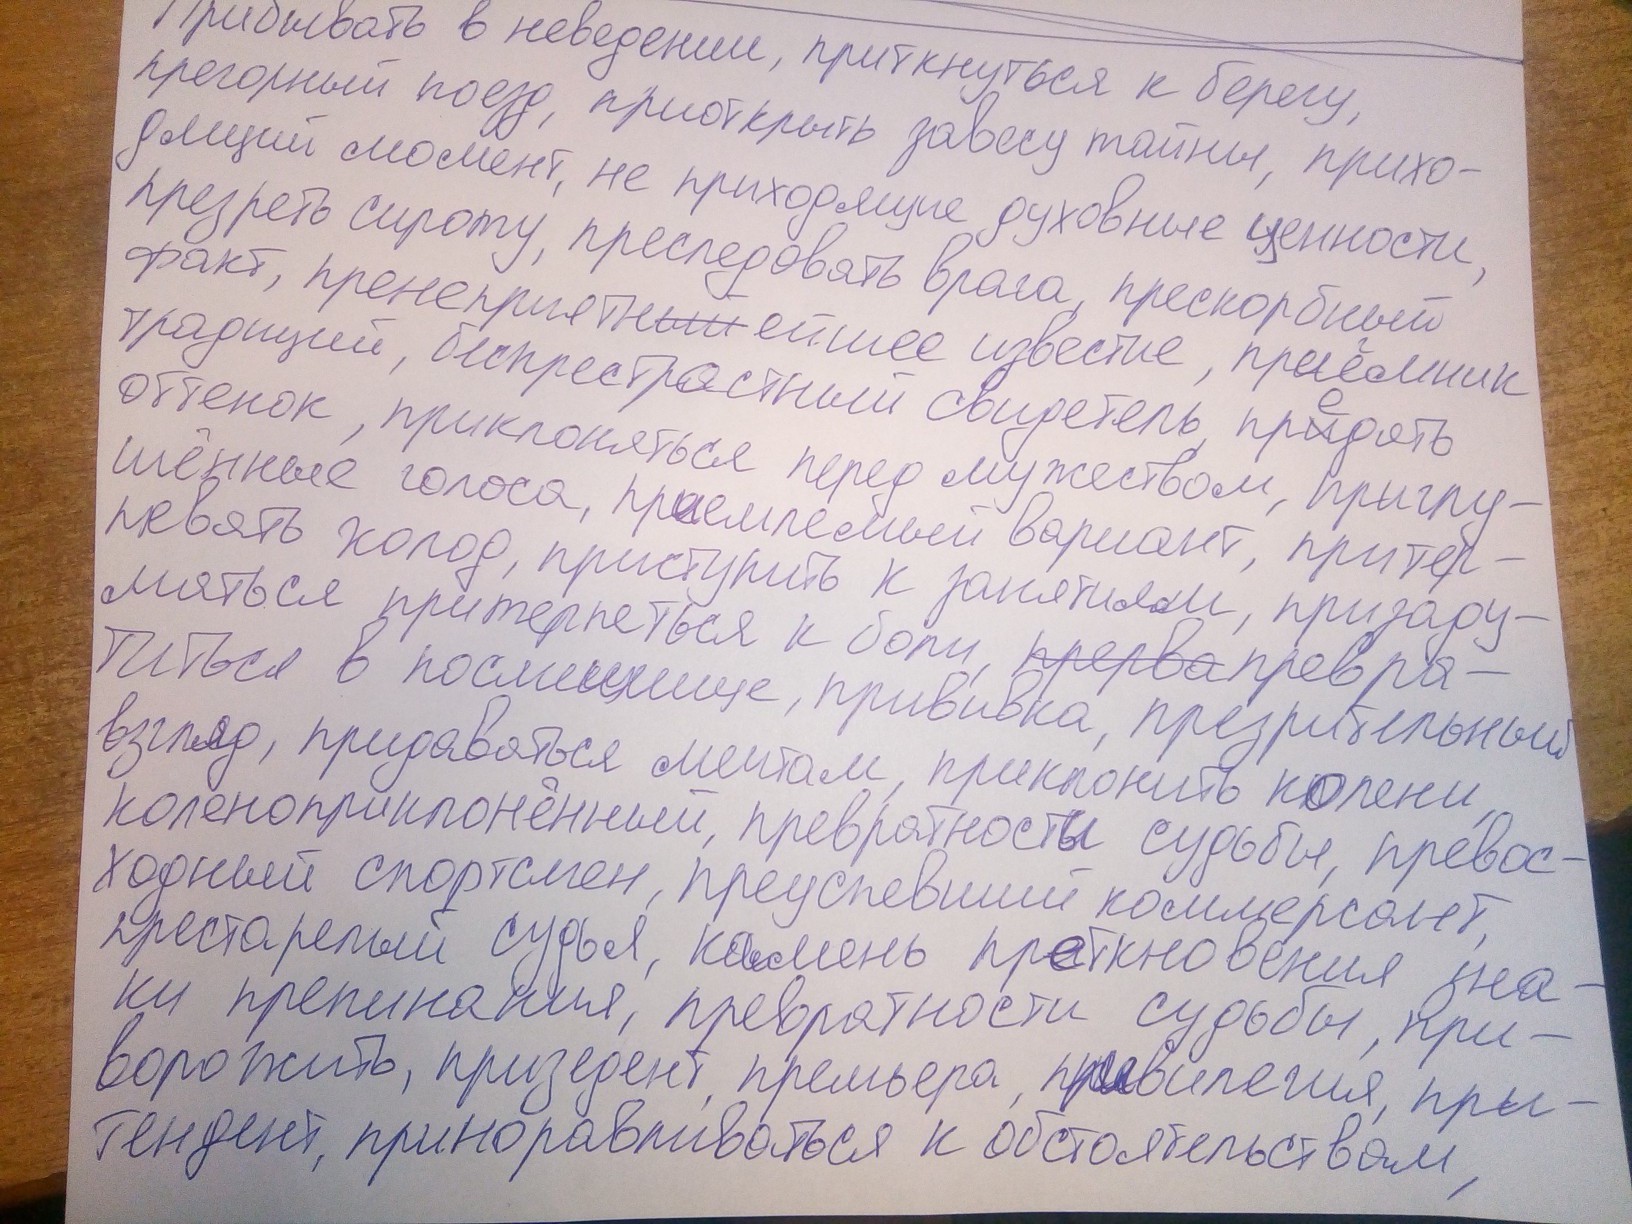 Прибывать в неведении, приткнуться к берегу,
прегорный поезд, приоткрыть завесу тайны, прихо-
дящий момент, не приходящие духовные ценности,
презреть сироту, преследовать врага, прескорбный
факт, пренеприятнейшее известие, приёмник
традиций, беспрестрастный свидетель, предать
оттенок, приклоняться перед мужеством, приглу-
шённые голоса, приемлемый вариант, притер-
певать холод, приступить к занятиям, призаду-
мяться притерпеться к боли, прерва превра-
титься в посмешище, прививка, презрительный
взгляд, придаваться мечтам, приклонить колени,
коленоприклонённый, превратности судьбы, превос-
ходный спортсмен, преуспевший коммерсант,
престарелый судья, камень преткновения зна-
ки препинания, превратности судьбы, при-
ворожить, призедент, премьера, привилегия, при-
тендент, приноравливаться к обстоятельствам,